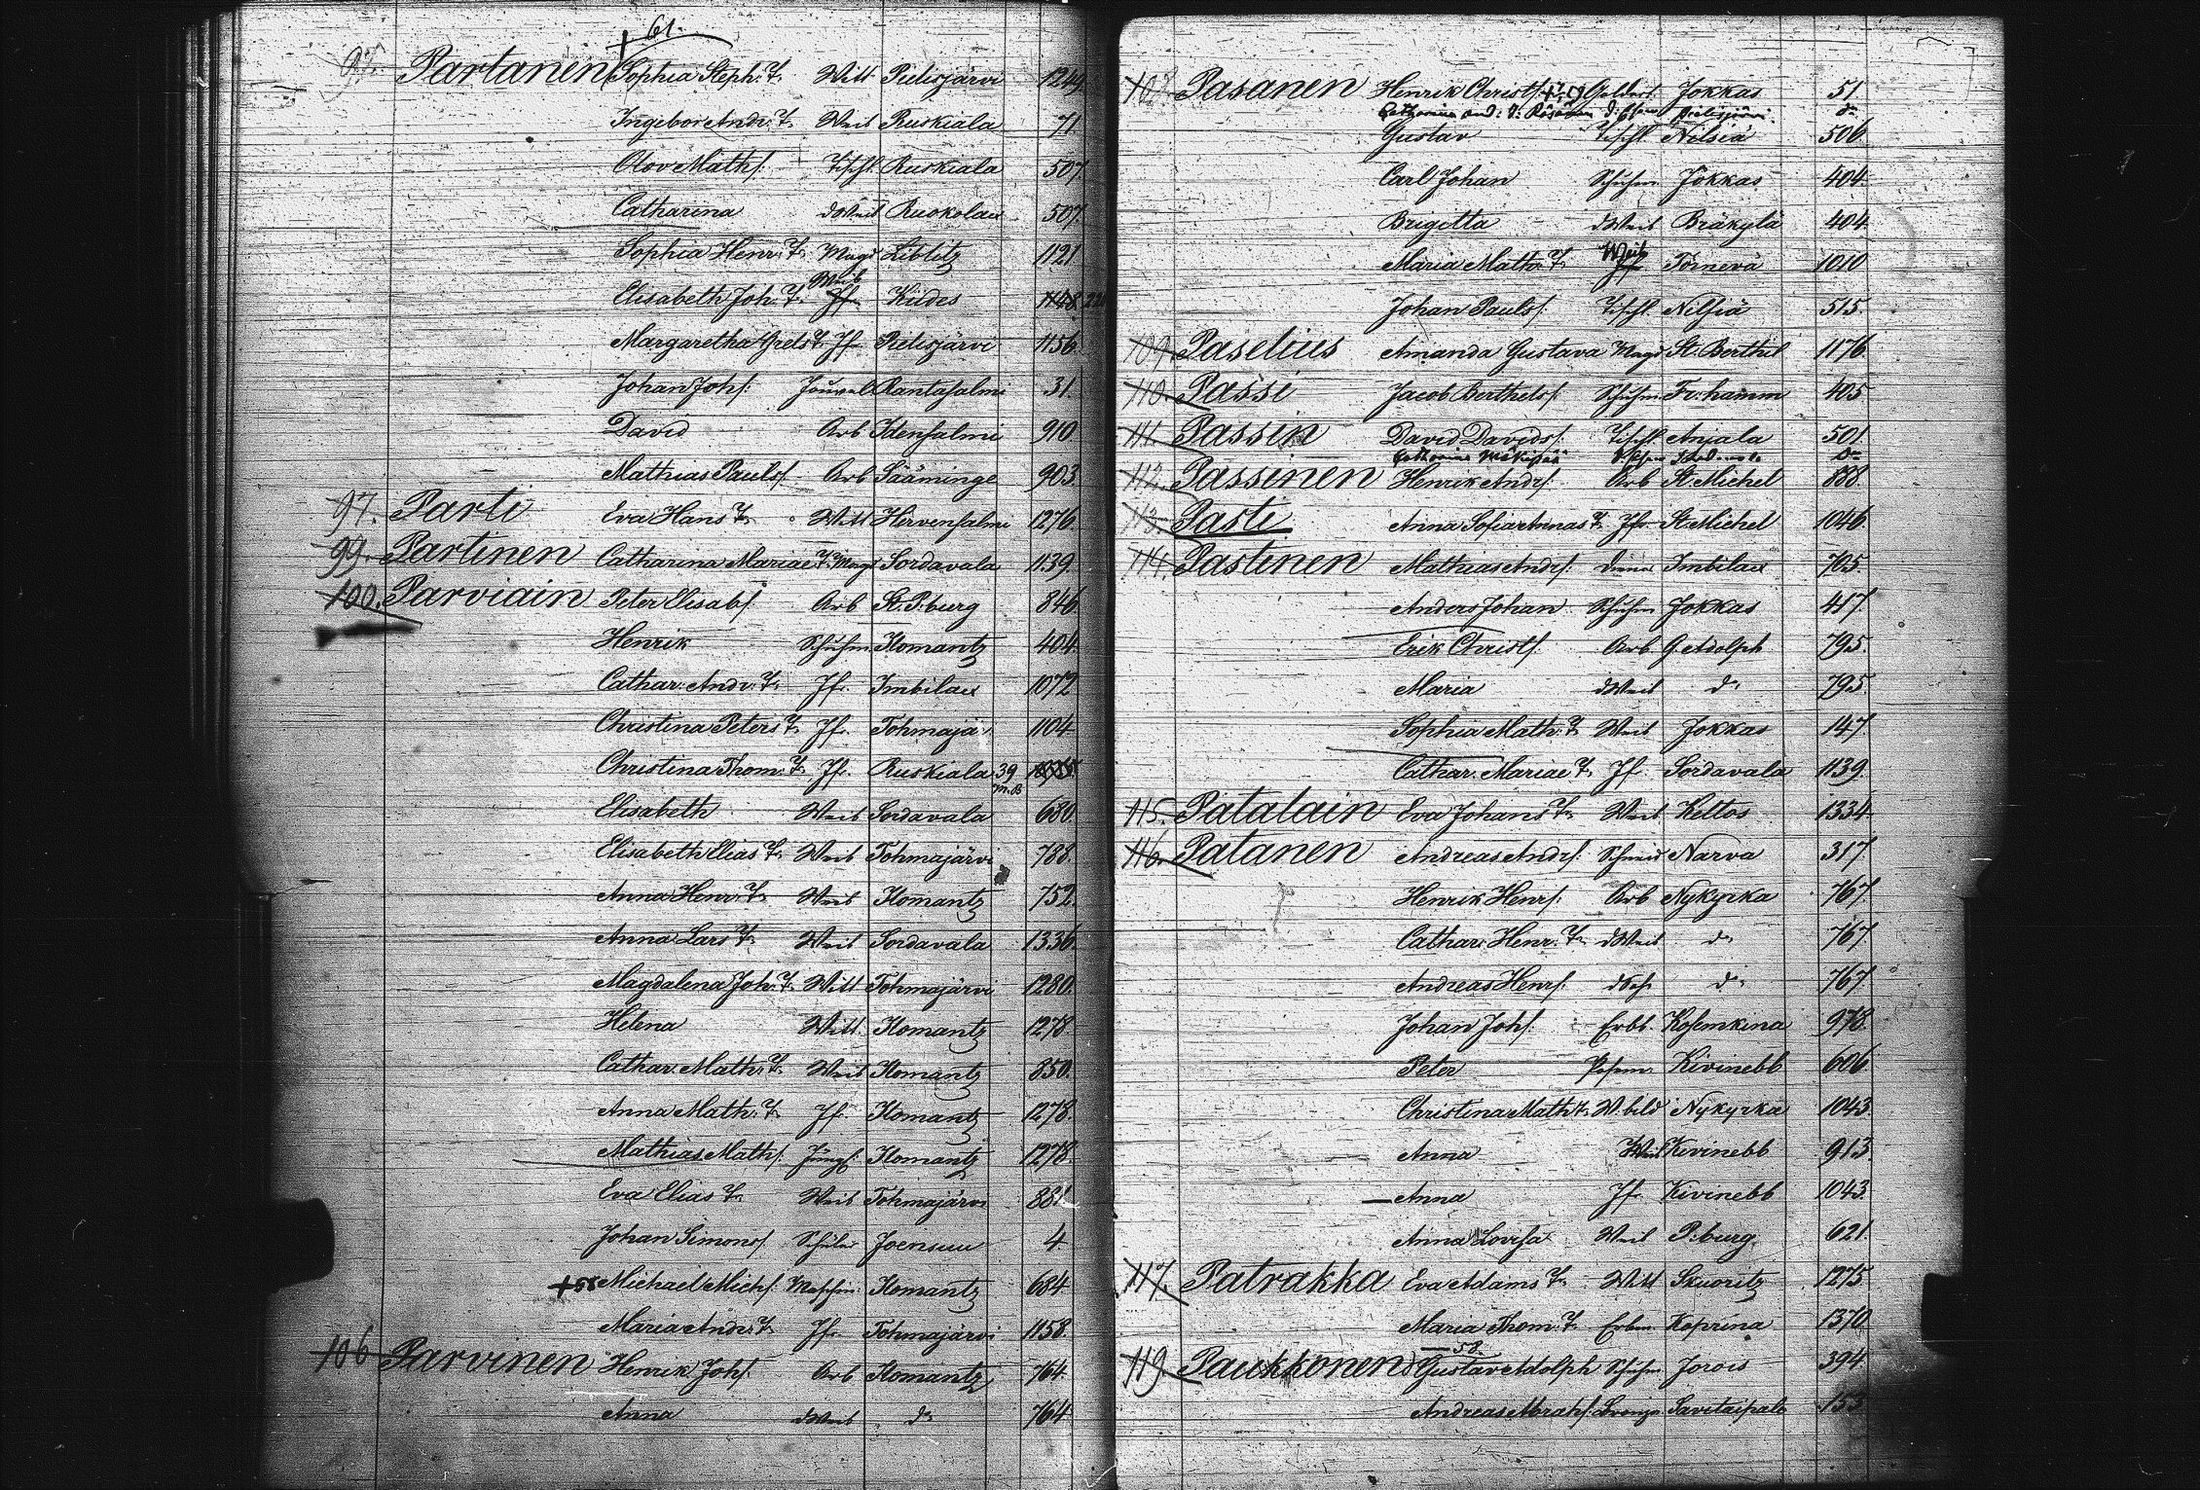 + 61.
97. Partanen Sophia Steph: T. Witt Pielisjärvi 1244
Ingebor Andr: T. Weib Ruskiala 71
Olov Maths. Tischl. Ruskiala 507.
Catharina d Weib Ruokolax 507.
Sophia Henr: T. Magd Liblitz 1121
Weib
Elisabeth Joh: T. Jf. Kiides 1148
Margaretha Grels T. Jf. Pielisjärvi 1156
Johan Johs. Rantasalmi 31.
David Arb Idensalmi 910
Mathias Pauls. Arb Sääminge 903.
97. Parti Eva Hans T. Witt Hervensalmi 1276.
99. Partinen Catharina Mariae T. Magd Sordavala 1139.
100. Parviain Peter Elisabs. Arb St. P.burg 846.
Henrik Schuhm Ilomantz 404.
Cathar. Andr: T. Jf. Imbilax 1072
Christina Peters T. Jf. Tohmajä: 1104
Christina Thom: T. Jf. Ruskiala 39
M.B
Elisabeth Weib Sordavala 680.
Elisabeth Elias T. Weib Tohmajärvi 788.
Anna Henr: T. Weib Ilomantz 752.
Anna Lars T. Weib Sordavala 1336.
Magdalena Joh: T. Witt Tohmajärvi 1280.
Helena Witt. Ilomantz 1278.
Cathar. Math: T. Weib Ilomantz 850.
Anna Math: T. Jf. Ilomantz 1278.
Mathias Maths. Jüngl. Ilomantz 1278.
Eva Elias T. Weib Tohmajärvi 881
Johan Simons. Schüler Joensuu 4
+ 58 Michael Michs. Maschin: Ilomantz 684
Maria Andr: T. Jf. Tohmajärvi 1158.
106 Parvinen Henrik Johs. Arb Ilomantz 764.
Anna d Weib d: 764
107. Pasanen Henrik Christs. + 59 Goldarb. Jokkas 51
Catharina And: T. Räsänen d. Ehefrau Pielisjärvi. d:
Gustav Tischl Nilsiä 506.
Carl Johan Schuhm Jokkas 404.
Brigitta d Weib Bräkylä 404.
Weib
Maria Math: T. Jf. Törnevä 1010
Johan Pauls. Tischl. Nilsiä 515.
109. Paselius Amanda Gustava Magd St. Berthel 1176.
110. Passi Jacob Berthels. Schuhm. Fr: hamm 405.
111. Passin David Davids. Tischl. Anjala 501.
Catharina
112. Passinen Henrik Andrs. Arb St. Michel 888.
113. Pasti Anna Sofia Annas T. Jfr. St. Michel 1046.
114. Pastinen Mathias Andrs. Imbilax 705.
Anders Johan Schuhm Jokkas 417.
Erik Christs. Arb. G. Adolph 795.
Maria d Weib d: 795.
Sophia Math: T. Weib Jokkas 147.
Cathar. Mariae T. Jf. Sordavala 1139.
115. Patalain Eva Johans T. Weib Keltos 1334
116. Patanen Andreas Andrs. Schmid Narva 317.
Henrik Henrs. Arb Nykyrka 767.
Cathar. Henr: T. d Weib d: 767
Andreas Henrs. d Sohn d: 767.
Johan Johs. Erbb. Kosemkina 978.
Peter Kivinebb 606
Christina Math: T. W. bild Nykyrka 1043.
Anna Weib Kivinebb 913.
Anna Jf. Kivinebb 1043.
Anna Lovisa Weib P:burg. 621.
117. Patrakka Eva Adams T. Witt Skuoritz 1275.
Maria Thom: T. Erbm Koprina 1370
58.
119. Paukkonen Gustav Adolph Schuhm Jorois 394
Andreas Abrahs. Savitaipale 153